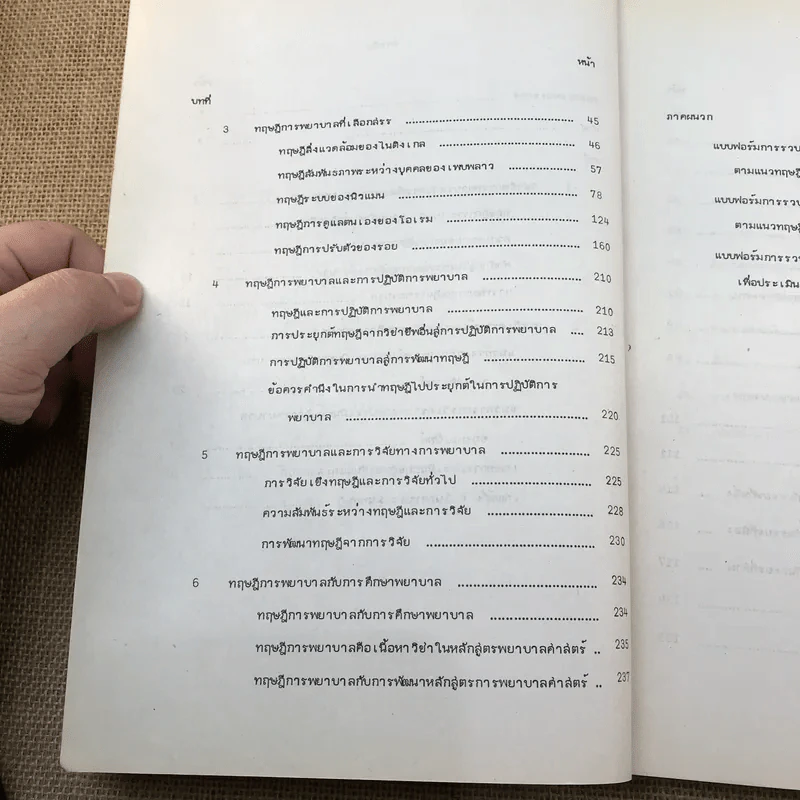 หน้า
บทที่
3 ทฤษฎีการพยาบาลที่เลือกสรร ........ 45
ทฤษฎีสิ่งแวดล้อมของไนติงเกล ........ 46
ทฤษฎีสัมพันธภาพระหว่างบุคคลของเพบพลาว ........ 57
ทฤษฎีระบบของนิวแมน ........ 78
ทฤษฎีการดูแลตนเองของโอเรม ........ 124
ทฤษฎีการปรับตัวของรอย ........ 160
4 ทฤษฎีการพยาบาลและการปฏิบัติการพยาบาล ........ 210
ทฤษฎีและการปฏิบัติการพยาบาล ........ 210
การประยุกต์ทฤษฎีจากวิชาชีพอื่นสู่การปฏิบัติการพยาบาล .... 213
การปฏิบัติการพยาบาลสู่การพัฒนาทฤษฎี ........ 215
ข้อควรคำนึงในการนำทฤษฎีไปประยุกต์ในการปฏิบัติการ
พยาบาล ........ 220
5 ทฤษฎีการพยาบาลและการวิจัยทางการพยาบาล ........ 225
การวิจัยเชิงทฤษฎีและการวิจัยทั่วไป ........ 225
ความสัมพันธ์ระหว่างทฤษฎีและการวิจัย ........ 228
การพัฒนาทฤษฎีจากการวิจัย ........ 230
6 ทฤษฎีการพยาบาลกับการศึกษาพยาบาล ........ 234
ทฤษฎีการพยาบาลกับการศึกษาพยาบาล ........ 234
ทฤษฎีการพยาบาลคือเนื้อหาวิชาในหลักสูตรพยาบาลศาสตร์ .. 235
ทฤษฎีการพยาบาลกับการพัฒนาหลักสูตรการพยาบาลศาสตร์ .. 237
ภาคผนวก
แบบฟอร์มการรวบ
ตามแนวทฤษฎี
แบบฟอร์มการรวบ
ตามแนวทฤษฎี
แบบฟอร์มการรวบ
เพื่อประเมิน